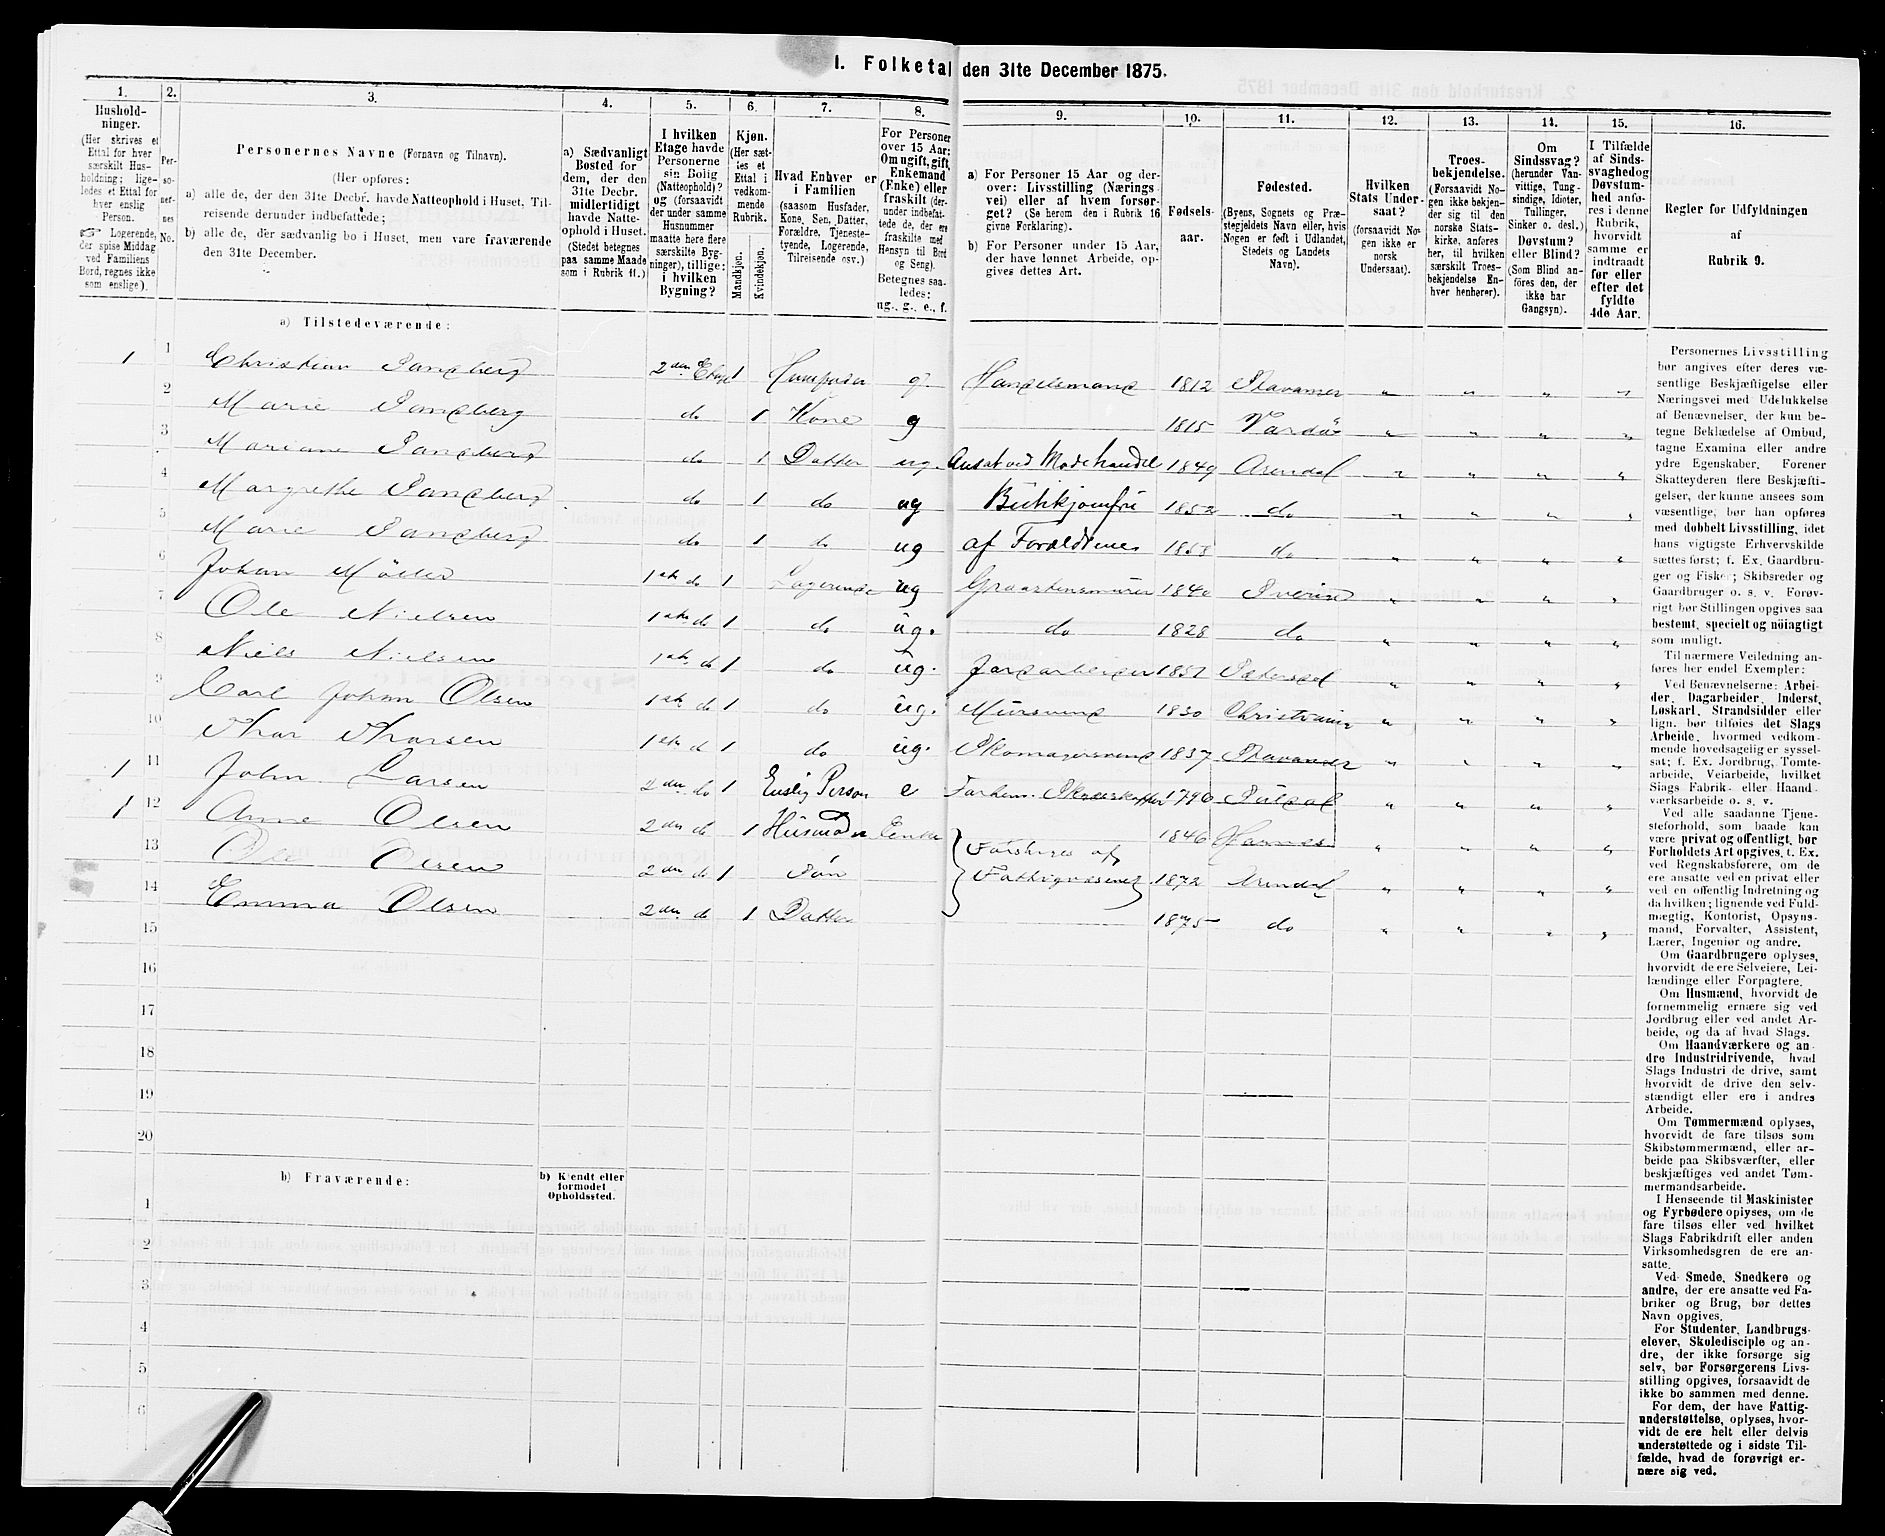 1. Folketal den 31te December 1875.
1. 2. 3. 4. 5. 6. 7. 8. 9. 10. 11. 12. 13. 14. 15. 16.
Hushold-
ninger.
(Her skrives et
Ettal for hver
særskilt Hus-
holdning; lige-
ledes et Ettal for
hver enslig
Person.
Logerende,
der spise Middag
ved Familiens
Bord, regnes ikke
som enslige).
Per-
so-
ner-
nes
No.
Personernes Navne (Fornavn og Tilnavn).
(Her opføres:
a) alle de, der den 31te Decbr. havde Natteophold i Huset, Til-
reisende derunder indbefattede;
b) alle de, der sædvanlig bo i Huset, men vare fraværende
den 31te December.
a) Sædvanligt
Bosted for
dem, der den
31te Decbr.
midlertidigt
havde Natte-
ophold i Huset.
(Stedet betegnes
paa samme Maade
som i Rubrik 11.)
I hvilken
Etage havde
Personerne
sin Bolig
(Natteophold)?
og (forsaavidt
der under samme
Husnummer
maatte høre flere
særskilte Byg-
ninger), tillige:
i hvilken
Bygning?
Kjøn.
(Her sæt-
tes et
Ettal i
vedkom-
mende
Rubrik.
Mandkjøn.
Kvindekjøn.
Hvad Enhver er
i Familien
(saasom Husfader,
Kone, Søn, Datter,
Forældre, Tjeneste-
tyende, Logerende,
Tilreisende osv.)
For Personer
over 15 Aar:
Om ugift, gift,
Enkemand
(Enke) eller
fraskilt (der-
under indbefat-
tede de, der ere
fraskilte med
Hensyn til Bord
og Seng).
Betegnes saa-
ledes:
ug., g., e., f.
a) For Personer 15 Aar og der-
over: Livsstilling (Nærings-
vei) eller af hvem forsør-
get? (Se herom den i Rubrik 16
givne Forklaring).
b) For Personer under 15 Aar,
der have lønnet Arbeide, op-
gives dettes Art.
Fødsels-
aar.
Fødested.
(Byens, Sognets og Præ-
stegjeldets Navn eller, hvis
Nogen er født i Udlandet,
Stedets og Landets
Navn).
Hvilken
Stats Under-
saat?
(forsaavidt No-
gen ikke er
norsk
Undersaat).
Troes-
bekjendelse.
(Forsaavidt No-
gen ikke bekjen-
der sig til den
norske Stats-
kirke, anføres
her, til hvilken
særskilt Troes-
bekjendelse En-
hver henhører).
Om
Sindssvag?
(herunder Van-
vittige, Tung-
sindige, Idioter,
Tullinger,
Sinker o. desl.)
Døvstum?
eller Blind?
(Som Blind an-
føres den, der
ikke har
Gangsyn).
I Tilfælde
af Sinds-
svaghed og
Døvstum-
hed anfø-
res i denne
Rubrik,
hvorvidt
samme er
indtraadt
før eller
efter det
fyldte
4de Aar.
Regler for Udfyldningen
af
Rubrik 9.
a) Tilstedeværende:
1 1 Christian Sandberg 2den Etage 1 Husfader g. Handelsmand 1812 Stavanger " " " "
2 Marie Sandberg do 1 Kone g 1815 Vardø " " " "
3 Mariane Sandberg do 1 Datter ug. Ansat ved Modehandel 1849 Arendal " " " "
4 Margrethe Sandberg do 1 do ug Butikjomfru 1852 do " " " "
5 Marie Sandberg do 1 do ug af Forældrenes 1858 do " " " "
6 Johan Møller 1ste do 1 Logerende ug Graastensmurer 1840 Sverige " " " "
7 Ole Nielsen 1ste do 1 do ug. do 1828 do " " " "
8 Niels Nielsen 1ste do 1 do ug. Jordarbeider 1851 " " " "
9 Carl Johan Olsen 1ste do 1 do ug. Mursvend 1830 Christiania " " " "
10 1ste d 1 do ug. Skomagersvend 1837 Stavanger " " " "
1 11 John Larsen 2den do 1 Enslig Person e 1796 " " " "
1 12 Anne Olsen 2den do 1 Husmoder Enke 1846 " " " "
13 Ole Olsen 2den do 1 Søn Forsørges af Fattigvæsenet 1872 Arendal " " " "
14 Emma Olsen 2den do 1 Datter 1875 do " " " "
15
16
17
18
19
20
b) Fraværende:
b) Kjendt eller
formodet
Opholdssted.
1
2
3
4
5
6
Personernes Livsstilling
bør angives efter deres væ-
sentlige Beskjæftigelse eller
Næringsvei med Udelukkelse
af Benævnelser, der kun be-
tegne Beklædelse af Ombud,
tagne Examina eller andre
ydre Egenskaber. Forener
Skatteyderen flere Beskjæfti-
gelser, der kunne ansees som
væsentlige, bør han opføres
med dobbelt Livsstilling, idet
hans vigtigste Erhvervskilde
sættes først; f. Ex. Gaardbru-
ger og Fisker; Skibsreder og
Gaardbruger o. s. v. Forøv-
rigt bør Stillingen opgives saa
bestemt, specielt og nöiagtigt
som muligt.
Til nærmere Veiledning an-
føres her endel Exempler:
Ved Benævnelserne: Arbei-
der, Dagarbeider, Inderst,
Løskarl, Strandsidder eller
lign. bør tilføies det Slags
Arbeide, hvormed vedkom-
mende hovedsagelig er syssel-
sat; f. Ex. Jordbrug, Tomte-
arbeide, Veiarbeide, hvilket
Slags Fabrik- eller Haand-
værksarbeide o. s. v.
Ved alle saadanne Tjene-
steforhold, som baade kan
være privat og offentligt, bør
Forholdets Art opgives, t. Ex.
ved Regnskabsførere, om de
ere ansatte ved en privat eller
ved en offentlig Indretning og
da hvilken; lignende ved Fuld-
mægtig, Kontorist, Opsyns-
mand, Forvalter, Assistent,
Lærer, Ingeniør og andre.
Om Gaardbrugere oplyses,
hvorvidt de ere Selveiere, Lei-
lændinge eller Forpagtere.
Om Husmænd, hvorvidt de
fornemmelig ernære sig ved
Jordbrug eller ved andet Ar-
beide, og da af hvad Slags.
Om Haandværkere og an-
dre Industridrivende, hvad
Slags Industri de drive, samt
hvorvidt de drive den selv-
stændigt eller ere i andres
Arbeide.
Om Tømmermænd oplyses,
hvorvidt de fare tilsøs som
Skibstømmermænd, eller ar-
beide paa Skibsværfter, eller
beskjæftiges ved andet Tøm-
mermandsarbeide.
I Henseende til Maskinister
og Fyrbødere oplyses, om de
fare tilsøs eller ved hvilket
Slags Fabrikdrift eller anden
Virksomhedsgren de ere an-
satte.
Ved Smede, Snedkere og
andre, der ere ansatte ved Fa-
briker og Brug, bør dettes
Navn opgives.
For Studenter, Landbrugs-
elever, Skoledisciple og an-
dre, der ikke forsørge sig
selv, bør Forsørgerens Livs-
stilling opgives, forsaavidt de
ikke bo sammen med denne.
For dem, der have Fattig-
understøttelse, oplyses, hvor-
vidt de ere helt eller delvis
understøttede og i sidste Til-
fælde, hvad de forøvrigt er-
nære sig ved.